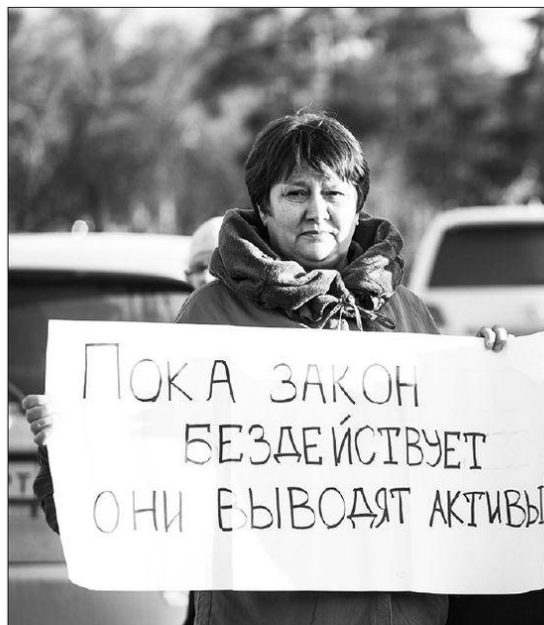 ПОКА ЗАКОН
БЕЗДЕЙСТВУЕТ
ОНИ ВЫВОДЯТ АКТИВЫ